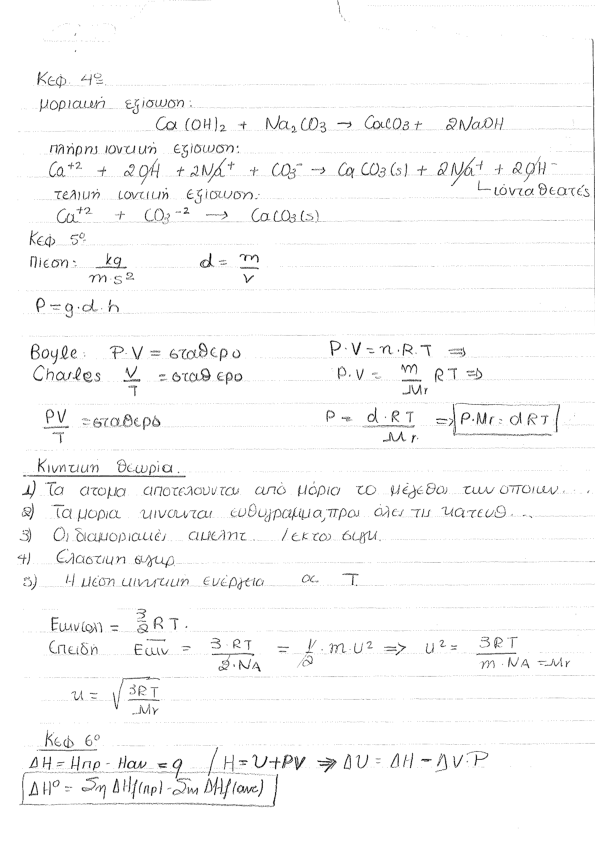 Κεφ 4º
μοριακή εξίσωση:
Ca(OH)₂ + Na₂CO₃ → CaCO₃ + 2NaOH
πλήρης ιοντική εξίσωση:
Ca⁺² + 2OH + 2Na⁺ + CO₃⁻ → CaCO₃(s) + 2Na⁺ + 2OH⁻
τελική ιοντική εξίσωση: ιόντα θεατές
Ca⁺² + CO₃⁻² → CaCO₃(s)
Κεφ 5º
Πίεση: kg/m·s² d = m/V
P = g·d·h
Boyle: P·V = σταθερο P·V = n·R·T ⇒
Charles V/T = σταθερο P·V = m/Mr RT ⇒
PV/T = σταθερο P = d·RT/Mr ⇒ P·Mr = dRT
Κινητική θεωρία.
1) Τα ατομα αποτελουνται από μόρια το μέγεθος των οποιων...
2) Τα μορια κινουνται ευθυγραμμα, προς ολες τις κατευθ...
3) Οι διαμοριακές αμελητ. /εκτος συγκ.
4) Ελαστικη συγκρ
5) Η μέση κινητική ενέργεια α T.
Eκιν(ολ) = 3/2 RT.
Επειδη Eκιν = 3·RT/2·NA = 1/2·m·u² ⇒ u² = 3RT/m·NA = Mr
u = √3RT/Mr
Κεφ 6º
ΔH = Hπρ - Hαν = q / H = U + PV ⇒ ΔU = ΔH - ΔV·P
ΔHº = Σn ΔHf(πρ) - Σm ΔHf(ανς)